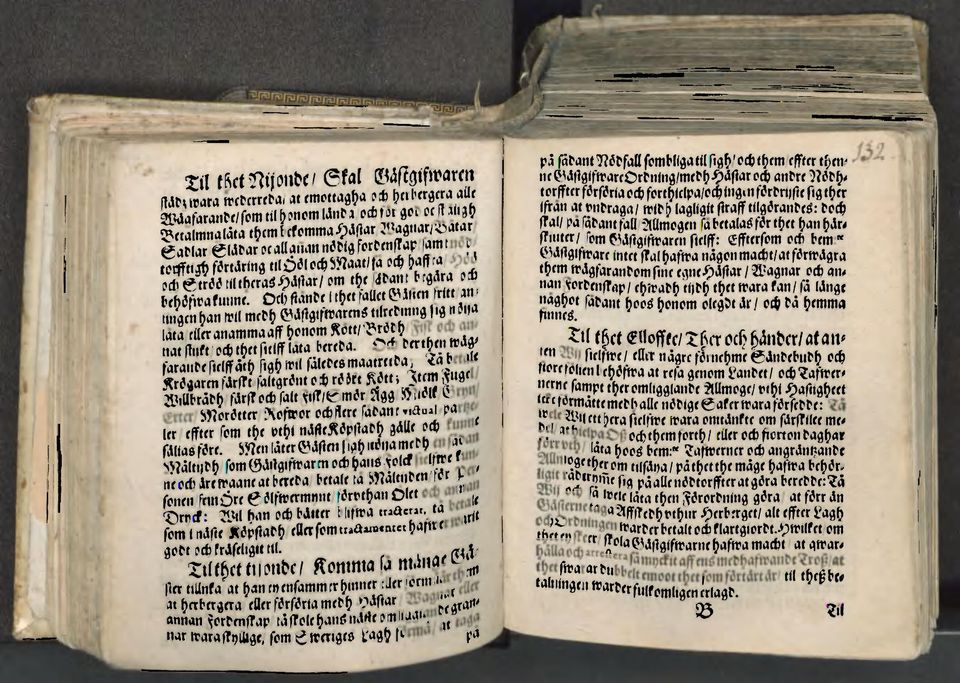 Til thet Nijonde/ Skal Gästgifwaren
städz wara wederreda/ at emottagha och herbergera alle
Wäafarande/ som til honom lända och för god oc skäligh
Betalning låta them bekomma Hästar Wagnar/ Båtar/
Sadlar Slädar oc all annan nödig fordenskap samt nöd
torfftigh förtäring til Ööl och Maat/ så och haffra Höö
och Ströö til theras Hästar/ om the sådant begära och
behöfwa kunne. Och stånde i thet fallet Gästen fritt an-
tingen han wil medh Gästgifwarens tilredning sig nöija
låta eller anamma aff honom Kött/ Brödh Fisk och an-
nat slijkt/ och thet sielff låta bereda. Och der then wäg-
farande sielff äth sigh wil således maatreeda; Tå betale
Krögaren färskt saltgrönt och röökt Kött; Item Fugel
Willbrådh/ färsk och salt Fisk/ Smör Ägg Miölk Gryn/
Erter/ Morötter Rofwor och flere sådant victual partze-
ler/ effter som the vthi näste Köpstadh gälle och kunne
sälias före. Men låter Gästen sigh nöija medh en sådan
Måltijdh som Gästgifwaren och hans Folck sielfwe kun-
ne och äre waane at bereda/ betale tå Måltijden/ för Per-
sonen fem Öre Sölfwermynt förvthan Ölet och annan
Dryck: Wil han och bätter blifwa tracterat, tå betale
som i näste Köpstadh/ eller som tractamentet hafwer warit
godt och kräseligit til.
Til thet tijonde/ Komma så månge Gä-
ster tillijka at han ey ensammer hinner eller förmår them
at herbergera eller förföra medh Hästar Wagnar eller
annan Fordenskap tå skole hans näste omliggiande gran-
nar wara skyllige, som Sweriges Lagh förmå/ at taga
på
132
på sådant Nödfall som bliga til sigh/ och them effter then-
ne Gästgifware Ordning/ medh Hästar och andre Nödh-
torffter förföra och forthielpa/ och ingen fördrijste sig ther
ifrån at vndraga/ widh lagligit straff tilgörandes: doch
skal/ på sådant fall/ Allmogen så betalas för thet han här-
skiuter/ som Gästgifwaren sielff: Effter som och bem:te
Gästgifware intet skal hafwa någon macht/ at förwägra
them wägfarandom sine egne Hästar/ Wagnar och an-
nan Fordenskap/ ehwadh tijdh thet wara kan/ så länge
någhot sådant hoos honom olegdt är/ och då hemma
finnes.
Til thet Elloffte/ Ther och händer/ at an-
ten Wij sielfwe/ eller någre förnehme Sändebudh och
store följen behöfwa at resa genom Landet/ och Tafwer-
nerne sampt ther omliggiande Allmoge/ vthi Hastigheet
icke förmätte medh alle nödige Saker wara försedde: Tå
wele Wij ett hera sielfwe wara omtänkte om särskilte me-
del at hielpa Oß och them forth/ eller och fiorton daghar
förr vth/ låta hoos bem:te Tafwerner och angräntzande
Allmoge ther om tilsäija/ på thet the måge hafwa behör-
ligit rådrymme sig på alle nödtorffter at göra beredde: Tå
Wij och så wele låta then Förordning göra/ at förr än
Gästerne taga Affskedh vthur Herberget/ alt effter Lagh
och Ordningen warder betalt och klartgiordt. Hwilket om
thet ey skeer/ skola Gästgifwarne hafwa macht at qwar-
hålla och arrestera så mycket aff ens medhafwande Tross/ at
thet swarar dubbelt emoot thet som förtärt är/ til theß be-
talningen warder fulkomligen erlagd.
B Til